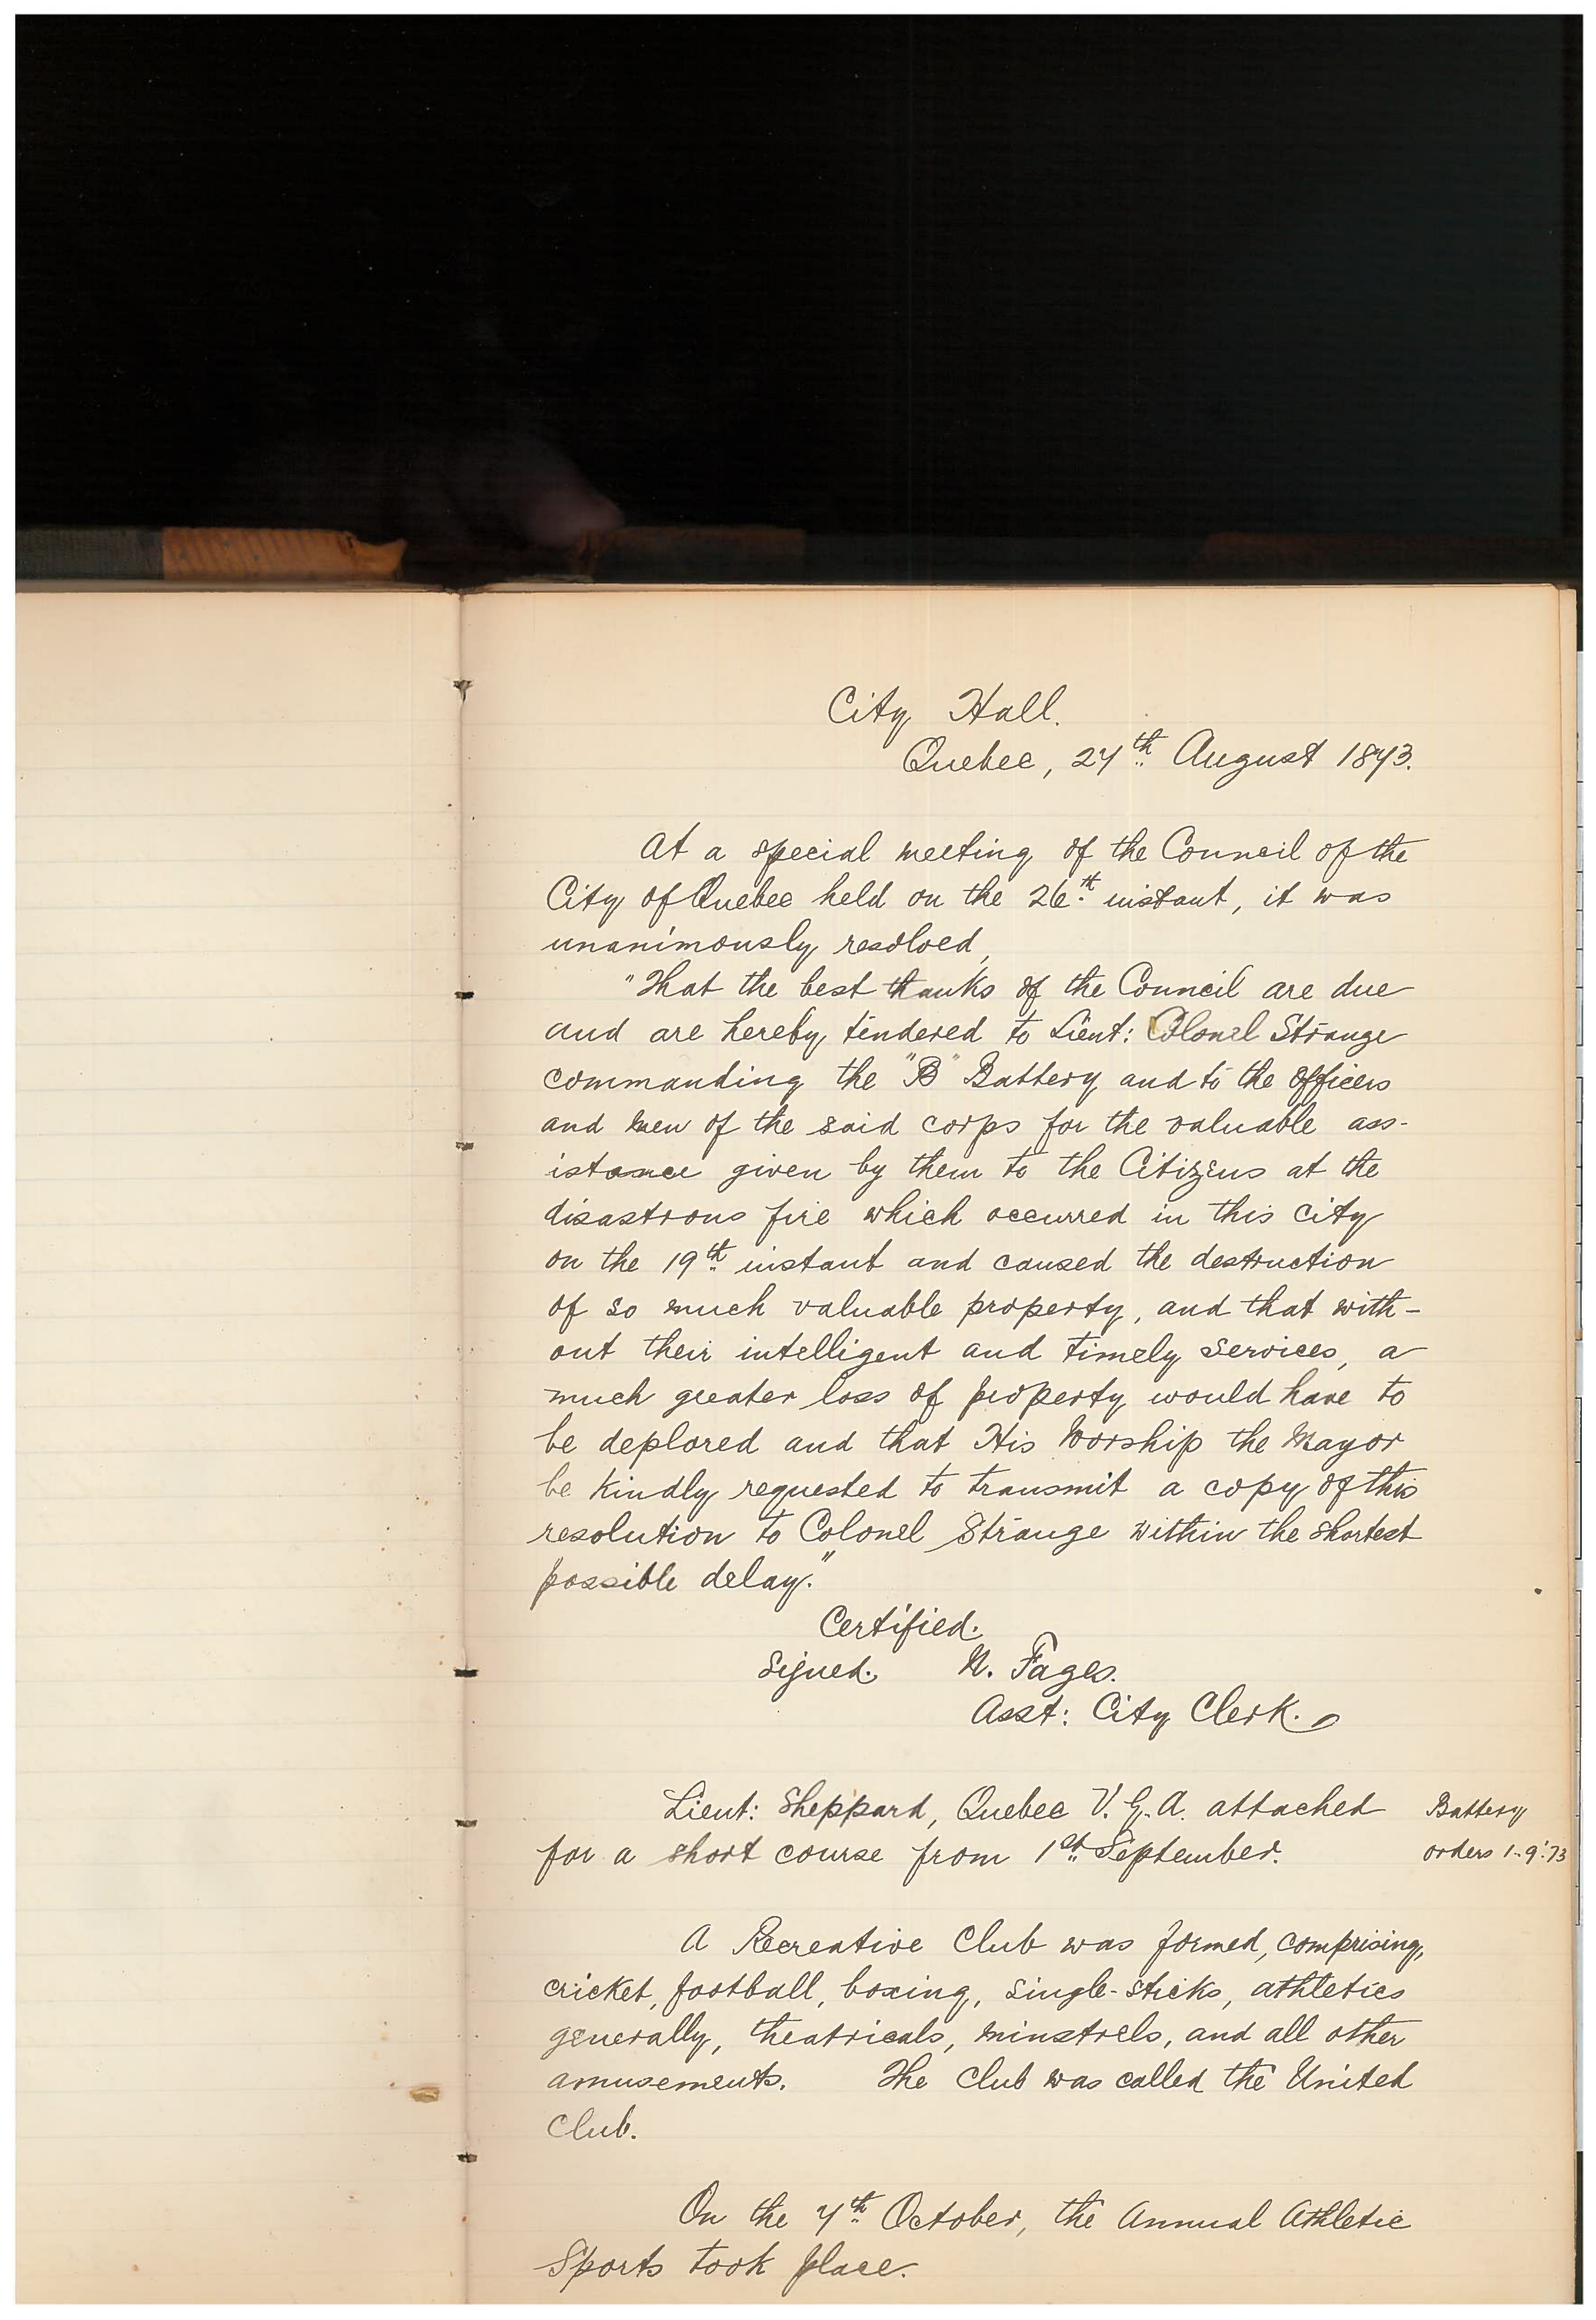 City Hall.
Quebec, 27th August 1873.
At a special meeting of the Council of the
City of Quebec held on the 26th instant, it was
unanimously resolved,
"That the best thanks of the Council are due
and are hereby tendered to Lieut: Colonel Strange
commanding the "B" Battery and to the officers
and men of the said corps for the valuable ass-
istance given by them to the Citizens at the
disastrous fire which occurred in this city
on the 19th instant and caused the destruction
of so much valuable property, and that with-
out their intelligent and timely services, a
much greater loss of property would have to
be deplored and that His Worship the Mayor
be kindly requested to transmit a copy of this
resolution to Colonel Strange within the shortest
possible delay."
Certified.
Signed. N. Fages.
Asst: City Clerk.
Lieut: Sheppard, Quebec V.G.A. attached Battery
for a short course from 1st September. orders 1-9-'73
A Recreative Club was formed, comprising,
cricket, football, boxing, single-sticks, athletics
generally, theatricals, minstrels, and all other
amusements. The Club was called the United
Club.
On the 7th October, the Annual Athletic
Sports took place.